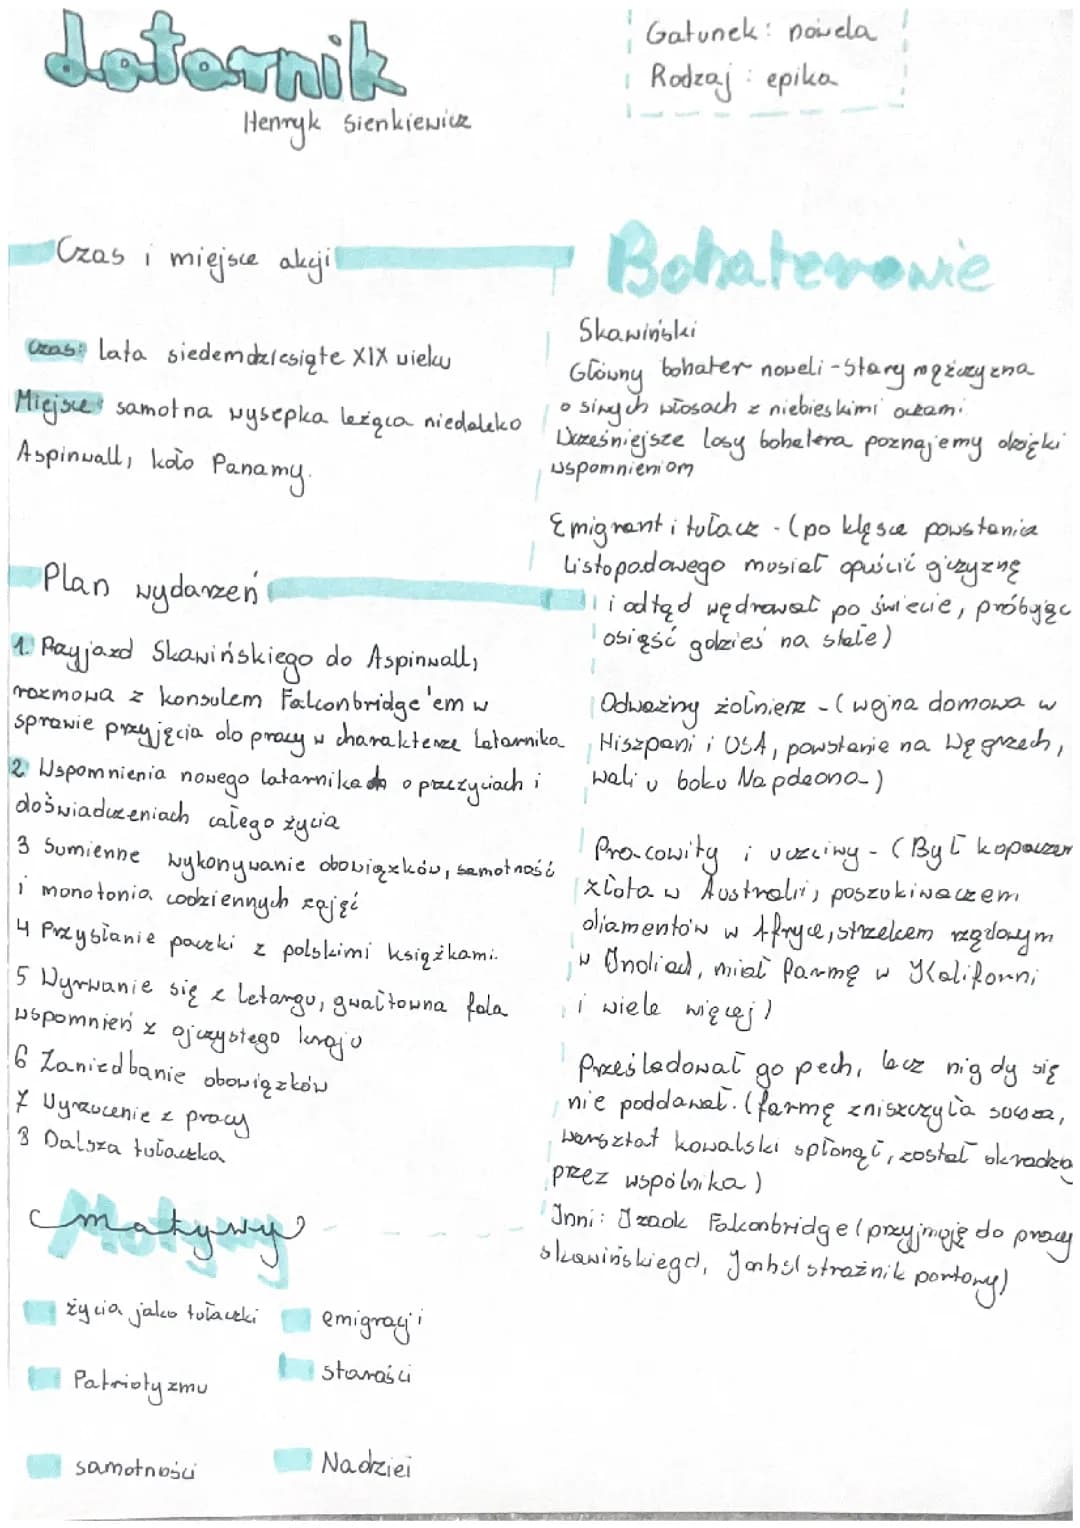 latarnik
Henryk Sienkiewicz
Gatunek: nowela
Rodzaj: epika
Czas i miejsce akcji
Czas: lata siedemdziesiąte XIX wieku
Miejsce: samotna wysepka leżąca niedaleko
Aspinwall, koło Panamy.
Plan wydarzeń
1. Przyjazd Skawińskiego do Aspinwall,
rozmowa z konsulem Falconbridge'em w
sprawie przyjęcia do pracy w charakterze latarnika
2 Wspomnienia nowego latarnika o przeżyciach i
doświadczeniach całego życia
3 Sumienne wykonywanie obowiązków, samotność
i monotonia codziennych zajęć
4 Przysłanie paczki z polskimi książkami.
5 Wyrwanie się z letargu, gwałtowna fala
wspomnień z ojczystego kraju
6 Zaniedbanie obowiązków
7 Wyrzucenie z pracy
8 Dalsza tułaczka
Motywy
motywy
życia jako tułaczki
emigracji
Patriotyzmu
starości
samotności
Nadziei
Bohaterowie
Skawiński
Główny bohater noweli - Stary mężczyzna
o siwych włosach z niebieskimi oczami.
Wcześniejsze losy bohatera poznajemy dzięki
wspomnieniom
Emigrant i tułacz - (po klęsce powstania
Listopadowego musiał opuścić ojczyznę
i odtąd wędrował po świecie, próbując
osiąść gdzieś na stałe)
Odważny żołnierz - (wojna domowa w
Hiszpani i USA, powstanie na Węgrzech,
wali u boku Napoleona)
Pracowity i uczciwy - (Był kopaczem
złota w Australii, poszukiwaczem
diamentów w Afryce, strzelcem rządowym
w Indiach, miał farmę w Kaliforni
i wiele więcej)
Prześladował go pech, lecz nigdy się
nie poddawał. (farmę zniszczyła susza,
warsztat kowalski spłonął, został okradzio
przez wspólnika)
Inni: Izaak Falconbridge (przyjmuję do pracy
skawińskiego), Johns (strażnik portowy)